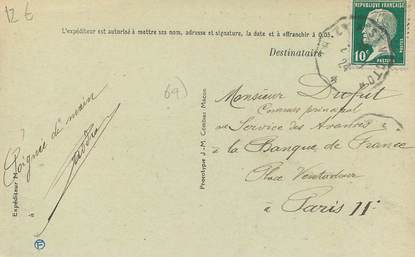 12 €
L'expéditeur est autorisé à mettre ses nom, adresse et signature, la date et à affranchir à 0,05.
Destinataire
REPUBLIQUE FRANÇAISE
10c
POSTES
69)
Poignée de main
Expéditeur M
à
Prototype J.-M. Combier Macon
Monsieur Dufut
Commis principal
au Service des Avances
à la Banque de France
Place Ventadour
à Paris 11e